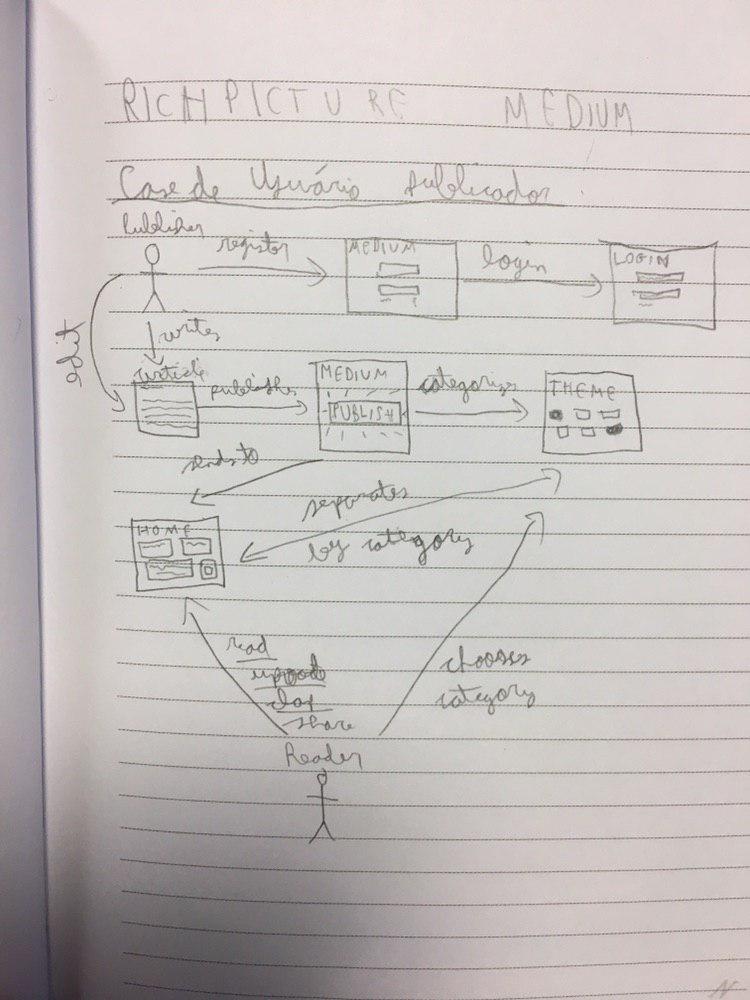 RICH PICTURE MEDIUM
Case de Usuário Publicador
Publisher
register
MEDIUM
login
LOGIN
edit
writes
article
publishes
MEDIUM
PUBLISH
categorizes
THEME
sends to
separates
by category
HOME
read
clap
share
chooses
category
Reader